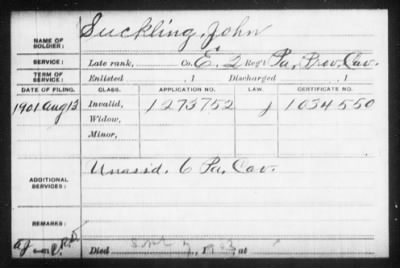 NAME OF SOLDIER: Suckling, John
SERVICE: Late rank, Co. E, 2 Reg't Pa. Prov. Cav.
TERM OF SERVICE: Enlisted , 1 Discharged , 1
DATE OF FILING. CLASS. APPLICATION NO. LAW. CERTIFICATE NO.
1901 Aug 13 Invalid, 1273752 J 1034550
Widow,
Minor,
ADDITIONAL SERVICES: Unassd. 6 Pa. Cav.
REMARKS:
Died , 1 at